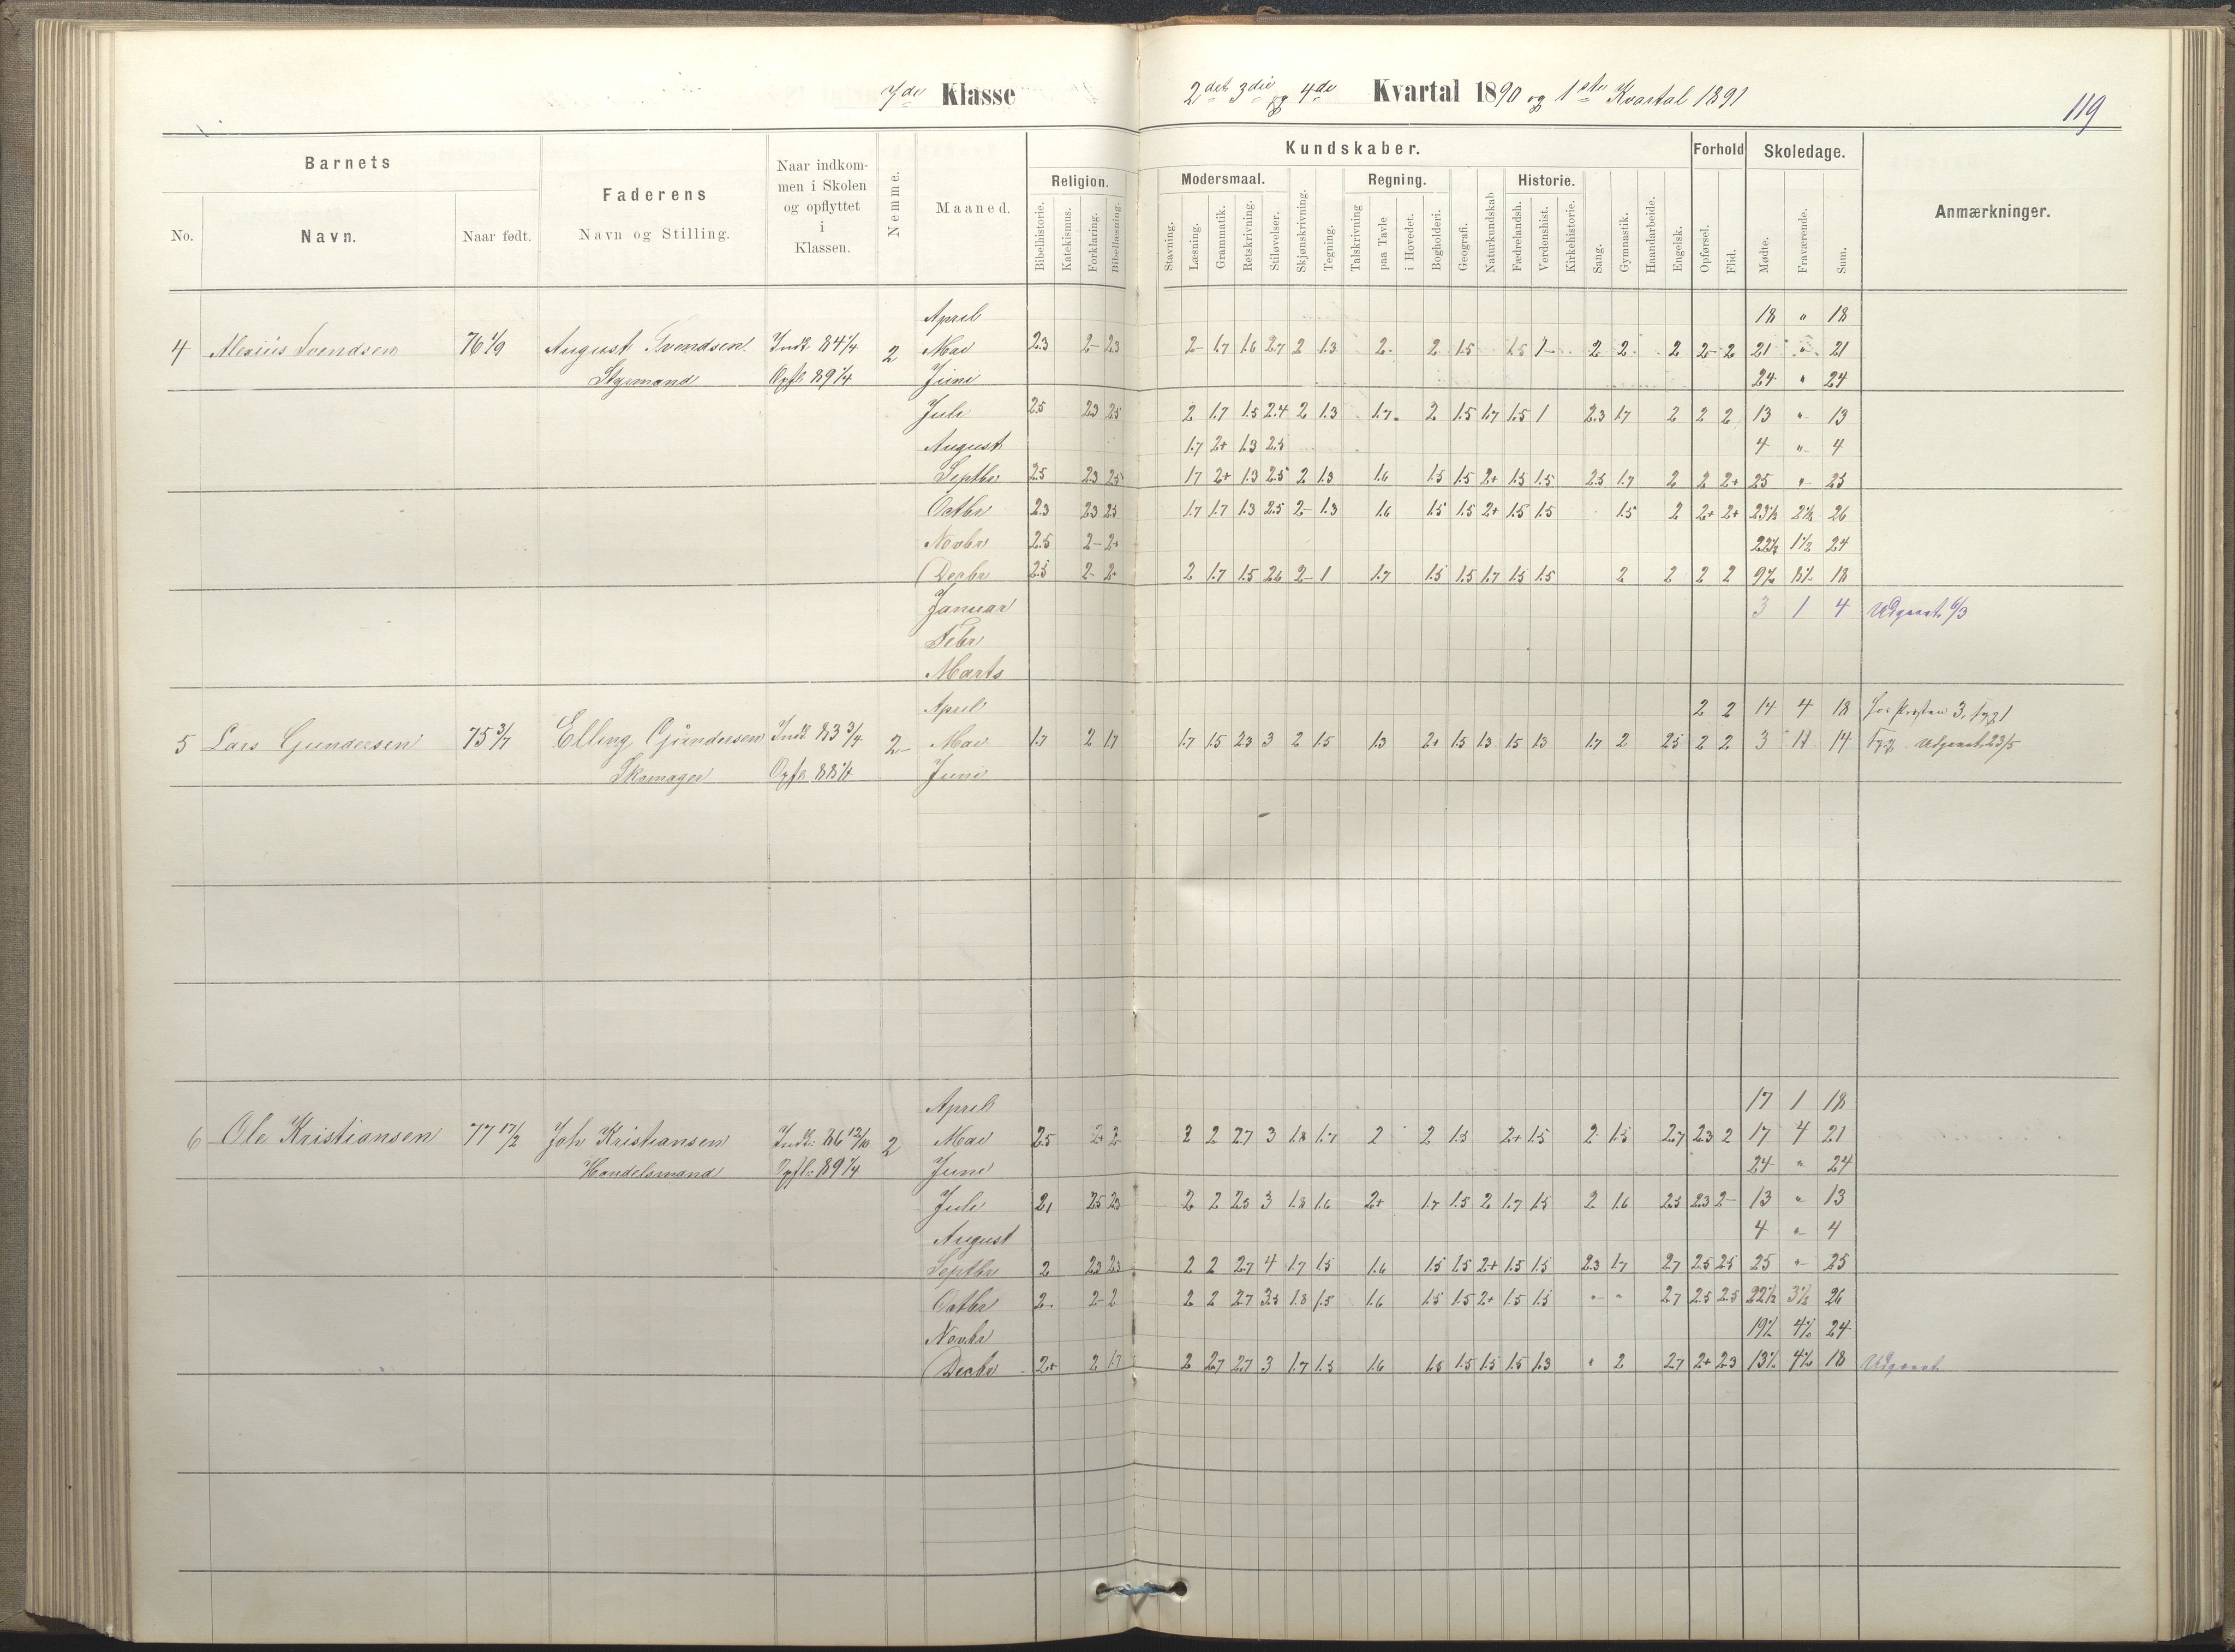 7de Klasse 2det 3die og 4de Kvartal 1890 og 1ste Kvartal 1891
119
Barnets
No. Navn. Naar født.
Faderens
Navn og Stilling.
Naar indkom-
men i Skolen
og opflyttet
i
Klassen.
Nemme.
Maaned.
Kundskaber.
Religion.
Bibelhistorie. Katekismus. Forklaring. Bibellæsning.
Modersmaal.
Stavning. Læsning. Grammatik. Retskrivning. Stiløvelser.
Skjønskrivning. Tegning.
Regning.
Talskrivning paa Tavle i Hovedet. Bogholderi.
Geografi. Naturkundskab
Historie.
Fædrelandsh. Verdenshist. Kirkehistorie.
Sang. Gymnastik. Haandarbeide. Engelsk.
Forhold
Opførsel. Flid.
Skoledage.
Mødte. Fraværende. Sum.
Anmærkninger.
April 18 " 18
4 Alexius Svendsen 76 1/9 August Svendsen Indk 84 1/4 2 Mai 2.3 2- 2.3 2- 1.7 1.6 2.7 2 1.3 2- 2 1.5 1.5 1- 2 2 2 2- 2 21 " 21
Styrmand Opfl 89 1/4 Juni 24 " 24
Juli 2.5 2.3 2.5 2 1.7 1.5 2.4 2 1.3 1.7 2 1.5 1.7 1.5 1 2.3 1.7 2 2 2 13 " 13
August 1.7 2+ 1.3 2.5 4 " 4
Septbr 2.5 2.3 2.5 1.7 2+ 1.3 2.5 2 1.3 1.6 1.5 1.5 2+ 1.5 1.5 2.5 1.7 2 2 2+ 25 " 25
Octbr 2.3 2.3 2.5 1.7 1.7 1.3 2.5 2- 1.3 1.6 1.5 1.5 2+ 1.5 1.5 1.5 2 2+ 2+ 23 1/2 2 1/2 26
Novbr 2.5 2- 2+ 22 1/2 1 1/2 24
Decbr 2.5 2- 2+ 2 1.7 1.5 2.6 2- 1 1.7 1.5 1.5 1.7 1.5 1.5 2 2 2 2 9 1/2 8 1/2 18
Januar 3 1 4 Udgaaet 6/3
Febr
Marts
April 2 2 14 4 18 hos Presten 3, syg 1
5 Lars Gundersen 75 3/7 Elling Gundersen Indk 83 3/4 2- Mai 1.7 2 1.7 1.7 1.5 2.3 3 2 1.5 1.3 2+ 1.5 1.3 1.5 1.3 1.7 2 2.5 2 2 3 11 14 syg. Udgaaet 23/5
Skomager Opfl 88 1/4 Juni
April 17 1 18
6 Ole Kristiansen 77 17/2 Joh Kristiansen Indk: 86 12/10 2 Mai 2.5 2+ 2- 2 2 2.7 3 1.8 1.7 2 2 1.5 2+ 1.5 2 1.5 2.7 2.3 2 17 4 21
Handelsmand Opfl: 89 1/4 Juni 24 " 24
Juli 2.1 2.5 2.3 2 2 2.5 3 1.8 1.6 2+ 1.7 1.5 2 1.7 1.5 2 1.6 2.5 2.3 2- 13 " 13
August 4 " 4
Septbr 2 2.3 2.3 2 2 2.7 4 1.7 1.5 1.6 1.5 1.5 2+ 1.5 1.5 2.3 1.7 2.7 2.5 2.5 25 " 25
Octbr 2- 2- 2 2 2 2.7 3.5 1.8 1.5 1.6 1.5 1.5 2+ 1.5 1.5 " " 2.7 2.5 2.5 22 1/2 3 1/2 26
Novbr 19 1/2 4 1/2 24
Decbr 2+ 2 1.7 2 2.7 2.7 3 1.7 1.5 1.6 1.5 1.5 1.5 1.5 1.3 " 2 2.7 2+ 2.3 13 1/2 4 1/2 18 Udgaaet